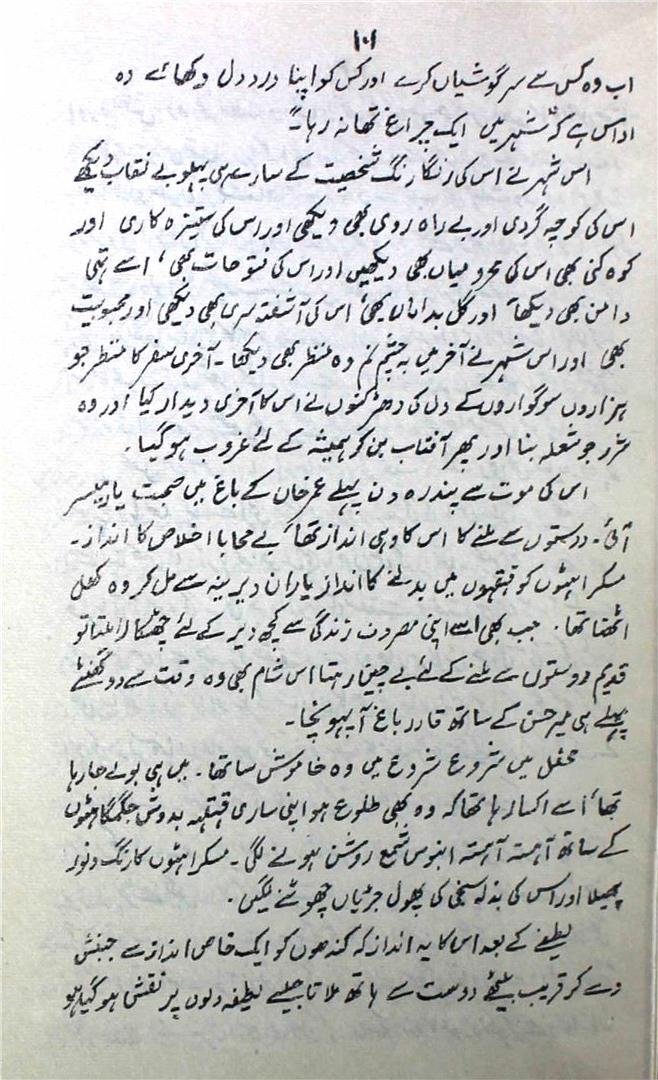 ۱۰۱
اب وہ کس سے سرگوشیاں کرے اور کس کو اپنا درد دل دکھائے وہ
اداس ہے کہ "شہر میں ایک چراغ تھا نہ رہا۔"
اس شہر نے اس کی رنگا رنگ شخصیت کے سارے ہی پہلو بے نقاب دیکھے
اس کی کوچہ گردی اور بے راہ روی بھی دیکھی اور اس کی ستیزہ کاری اور
کوہ کنی بھی اس کی محرومیاں بھی دیکھیں اور اس کی فتوحات بھی، اسے تہی
دامن بھی دیکھا اور گل بداماں بھی، اس کی آشفتہ سری بھی دیکھی اور محبوبیت
بھی اور اس شہر نے آخر میں بہ چشم نم وہ منظر بھی دیکھا۔ آخری سفر کا منظر جو
ہزاروں سوگواروں کے دل کی دھڑکنوں نے اس کا آخری دیدار کیا اور وہ
شرر جو شعلہ بنا اور پھر آفتاب بن کر ہمیشہ کے لئے غروب ہو گیا۔
اس کی موت سے پندرہ دن پہلے عمر خان کے باغ میں صحبت یار میسر
آئی۔ دوستوں سے ملنے کا اس کا وہی انداز تھا، بے محابا اخلاص کا انداز۔
مسکراہٹوں کو قہقہوں میں بدلنے کا انداز یاران دیرینہ سے مل کر وہ کھل
اٹھتا تھا۔ جب بھی اسے اپنی مصروف زندگی سے کچھ دیر کے لئے چھٹکارا ملتا تو
قدیم دوستوں سے ملنے کے لئے بے چین رہتا اس شام بھی وہ وقت سے دو گھنٹے
پہلے ہی میر حسن کے ساتھ قادر باغ آ پہونچا۔
محفل میں شروع شروع میں وہ خاموش سا تھا۔ میں ہی بولے جا رہا
تھا، اُسے اکسا رہا تھا کہ وہ بھی طلوع ہو اپنی ساری قہقہہ بدوش جگمگاہٹوں
کے ساتھ آہستہ آہستہ ابنوسی شمع روشن ہونے لگی۔ مسکراہٹوں کا رنگ و نور
پھیلا اور اس کی بذلہ سنجی کی پھول جڑیاں چھوٹنے لگیں۔
لطیفے کے بعد اس کا یہ انداز کہ کندھوں کو ایک خاص انداز سے جنبش
دے کر قریب بیٹھے دوست سے ہاتھ ملاتا جیسے لطیفہ دلوں پر نقش ہو گیا ہو